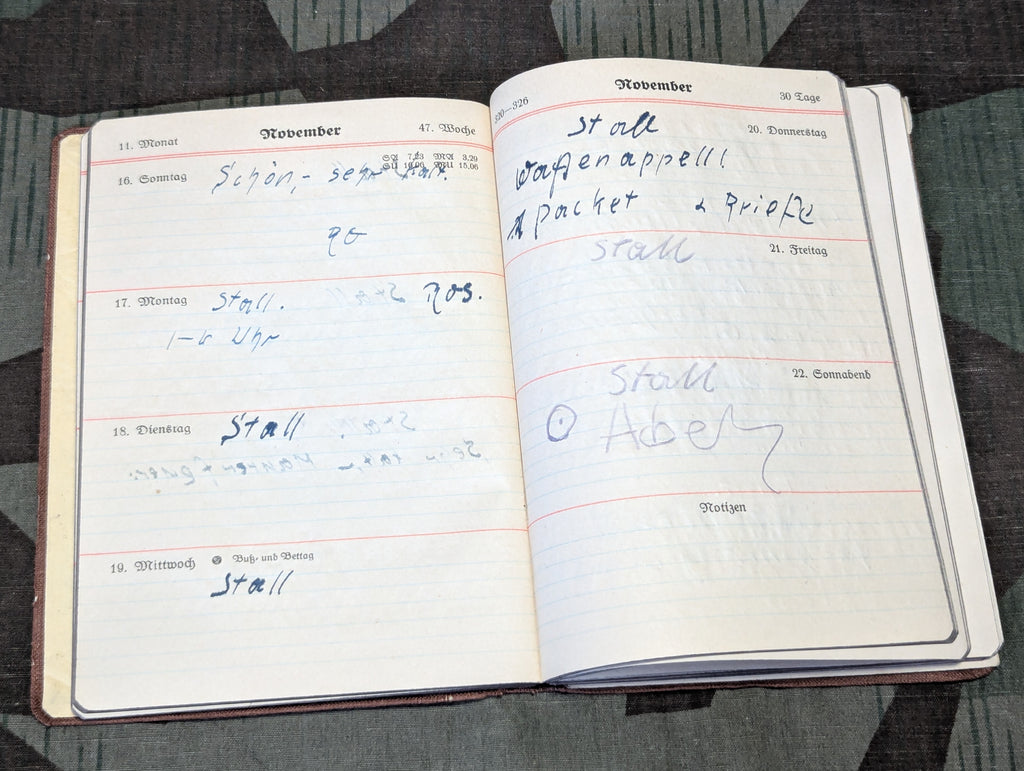 11. Monat November 47. Woche
SA 7.23 MA 3.29
SU 16.06 MU 15.06
16. Sonntag Schön,- sehr kalt.
17. Montag Stall. Stall
Uhr
18. Dienstag Stall
19. Mittwoch Buß- und Bettag
Stall
320—326 November 30 Tage
Stall 20. Donnerstag
Waffenappell!
1 Packet 2 Briefe
Stall 21. Freitag
22. Sonnabend
Stall
Notizen